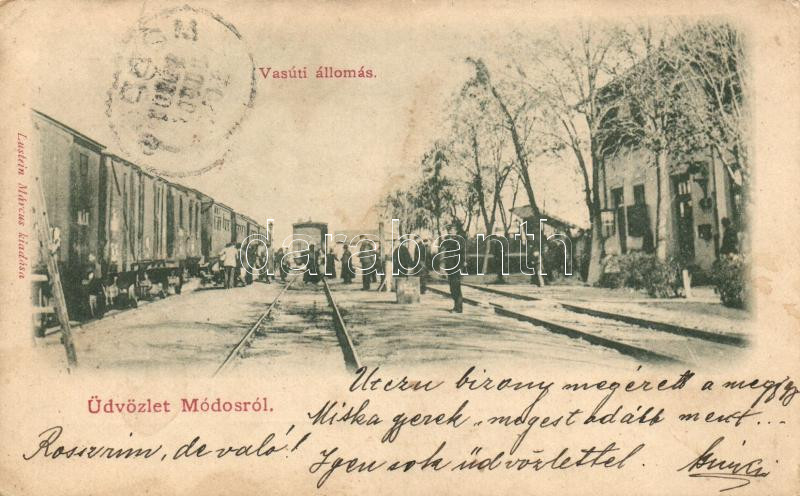 Vasúti állomás.
Lustein Márcus kiadása
darabanth
Üdvözlet Módosról.
Utczu bizony megérett a meggy
Miska gyerek, mogest adább ment...
Rossz rim, de való!
Igen sok üdvözlettel.